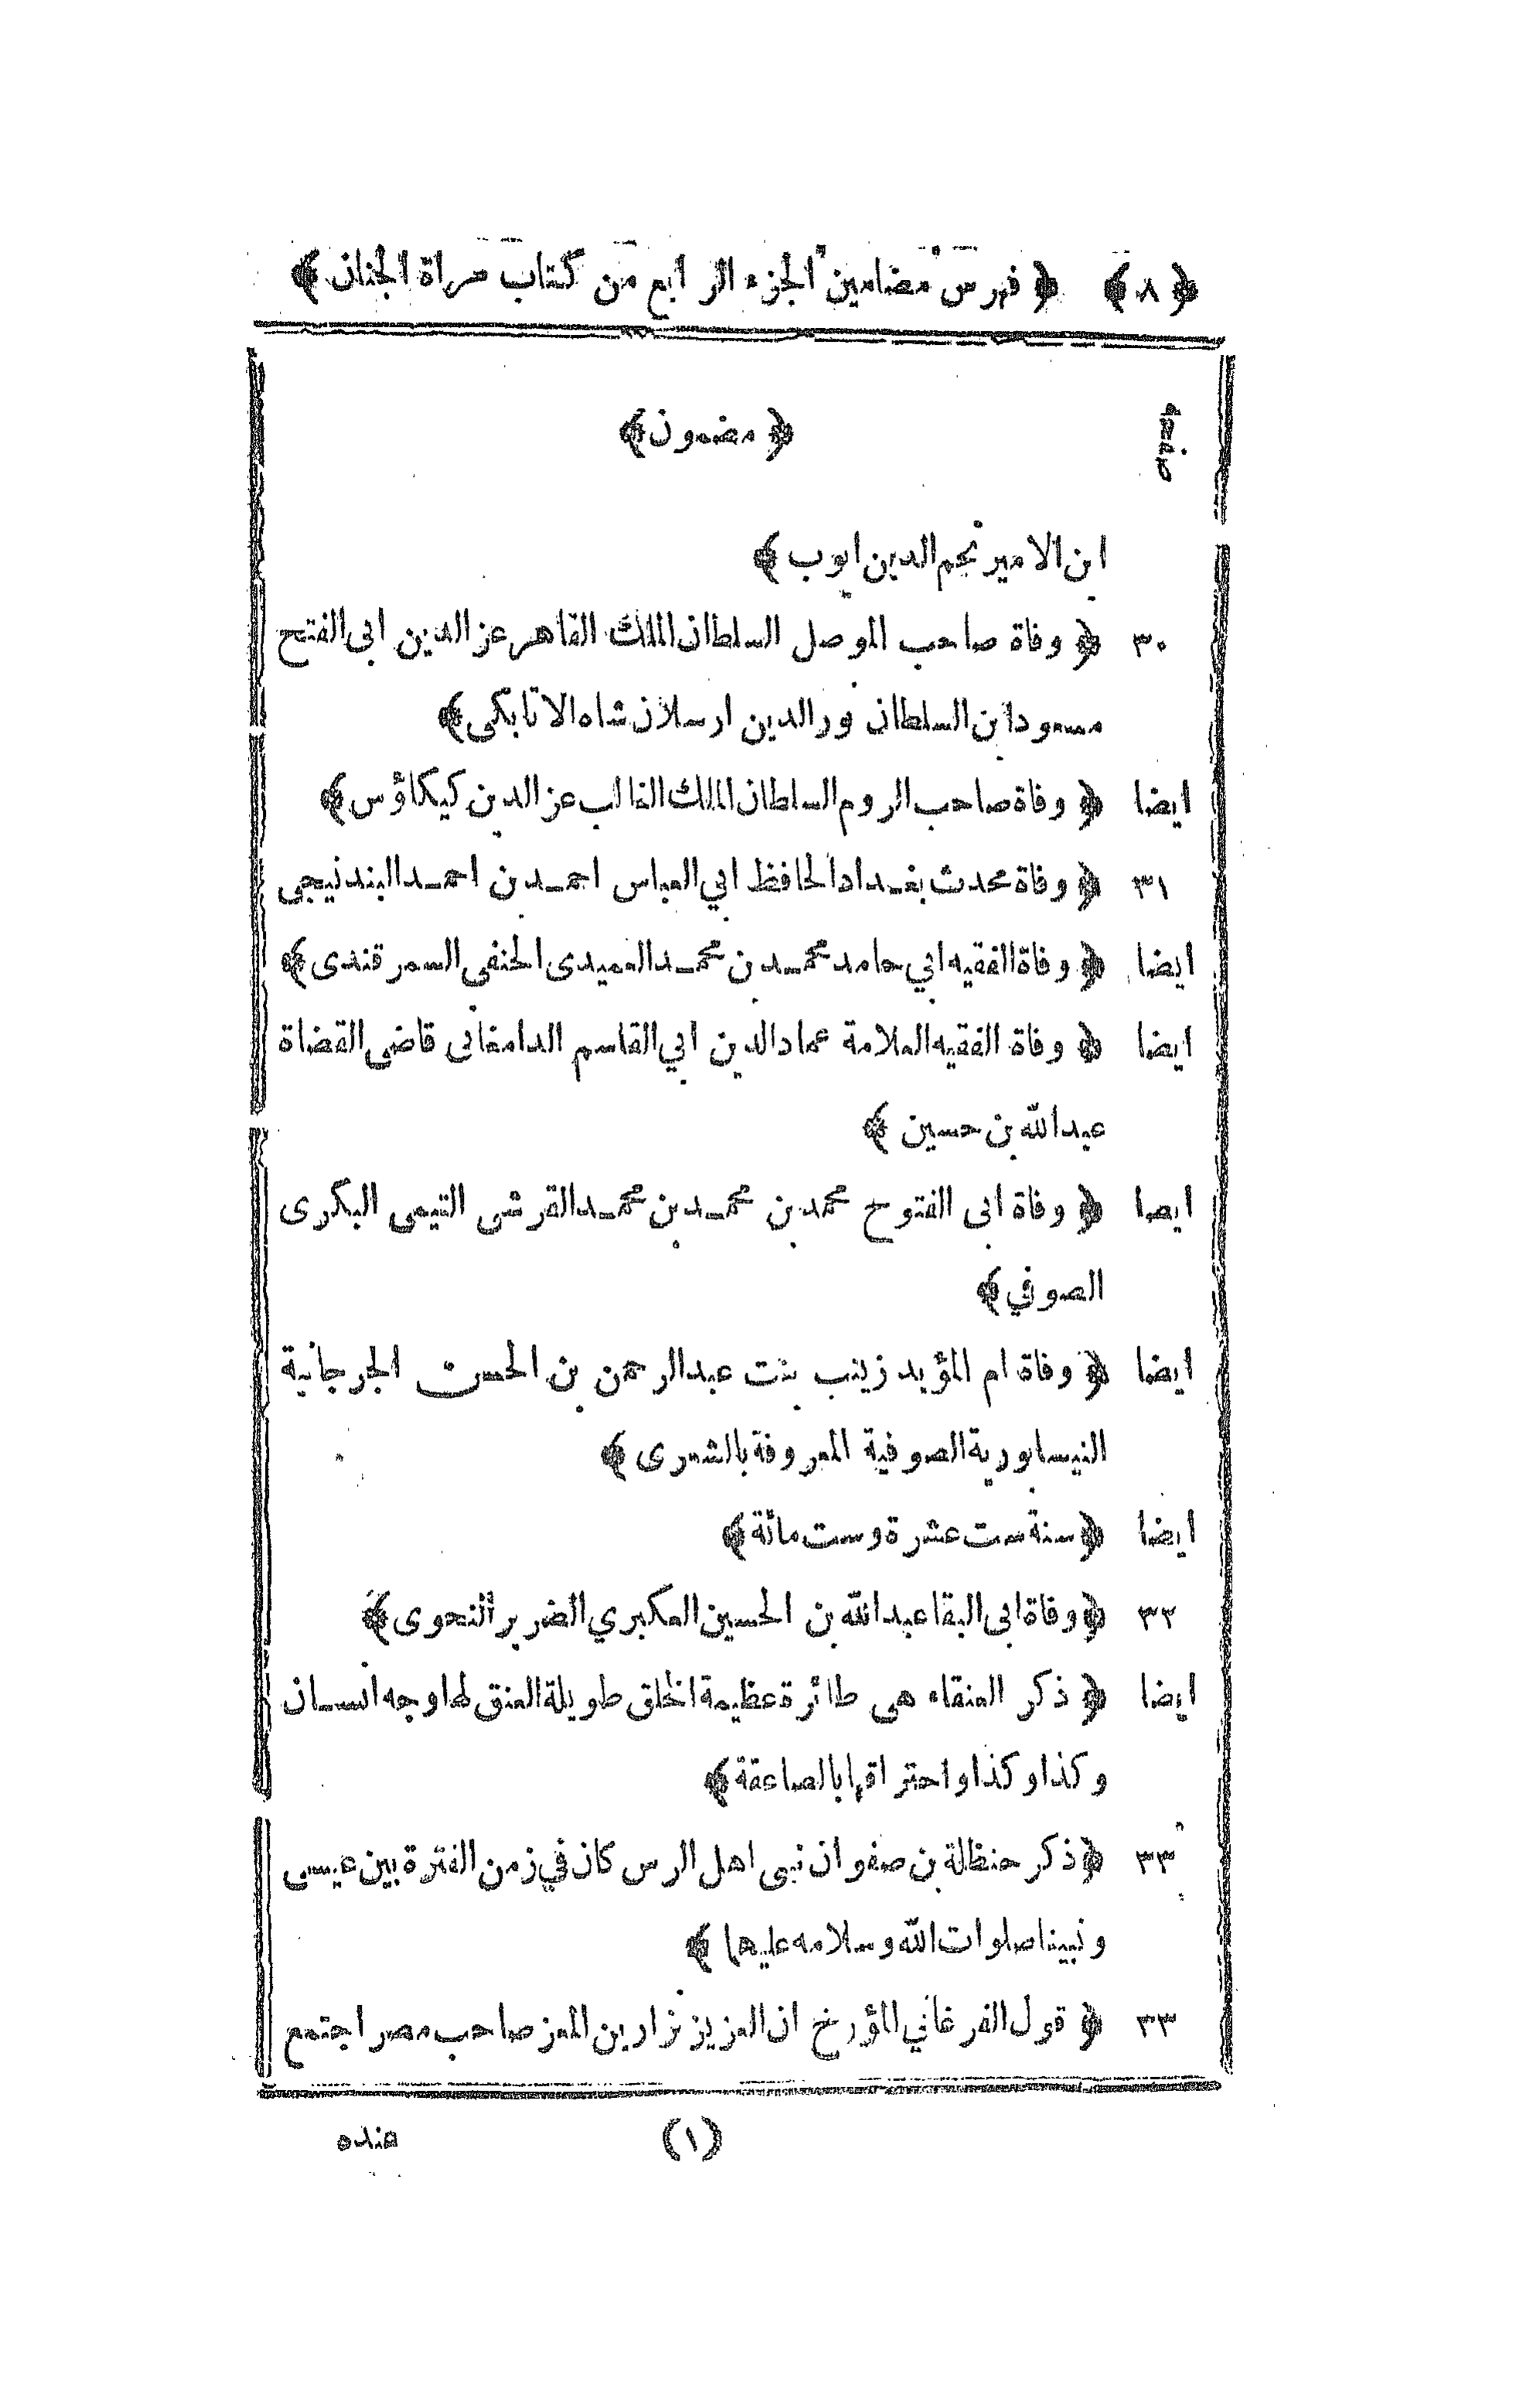 ﴿ ٨ ﴾ ﴿ فهرس مضامين الجزء الرابع من كتاب مراة الجنان ﴾
صفحه ﴿ مضمون ﴾
ابن الامير نجم الدين ايوب ﴾
٣٠ ﴿ وفاة صاحب الموصل السلطان الملك القاهر عز الدين ابى الفتح
مسعود ابن السلطان نور الدين ارسلان شاه الاتابكى ﴾
ايضا ﴿ وفاة صاحب الروم السلطان الملك الغالب عز الدين كيكاؤس ﴾
٣١ ﴿ وفاة محدث بغداد الحافظ ابي العباس احمد بن احمد البندنيجى
ايضا ﴿ وفاة الفقيه ابي حامد محمد بن محمد العميدى الحنفى السمرقندى ﴾
ايضا ﴿ وفاة الفقيه العلامة عماد الدين ابي القاسم الدامغانى قاضى القضاة
عبد الله بن حسين ﴾
ايصا ﴿ وفاة ابى الفتوح محمد بن محمد بن محمد القرشى التيمى البكرى
الصوفي ﴾
ايضا ﴿ وفاة ام المؤيد زينب بنت عبد الرحمن بن الحسن الجرجانية
النيسابورية الصوفية المعروفة بالشعرى ﴾
ايضا ﴿ سنة ست عشرة وست مائة ﴾
٣٢ ﴿ وفاة ابى البقا عبد الله بن الحسين العكبري الضرير النحوى ﴾
ايضا ﴿ ذكر العنقاء هى طائرة عظيمة الخلق طويلة العنق لها وجه انسان
وكذا وكذا واحتراقها بالصاعقة ﴾
٣٣ ﴿ ذكر حنظلة بن صفوان نبى اهل الرس كان في زمن الفترة بين عيسى
ونبينا صلوات الله وسلامه عليهما ﴾
٣٣ ﴿ قول الفرغاني المؤرخ ان العزيز نزار بن المعز صاحب مصر اجتمع
(١) عنده